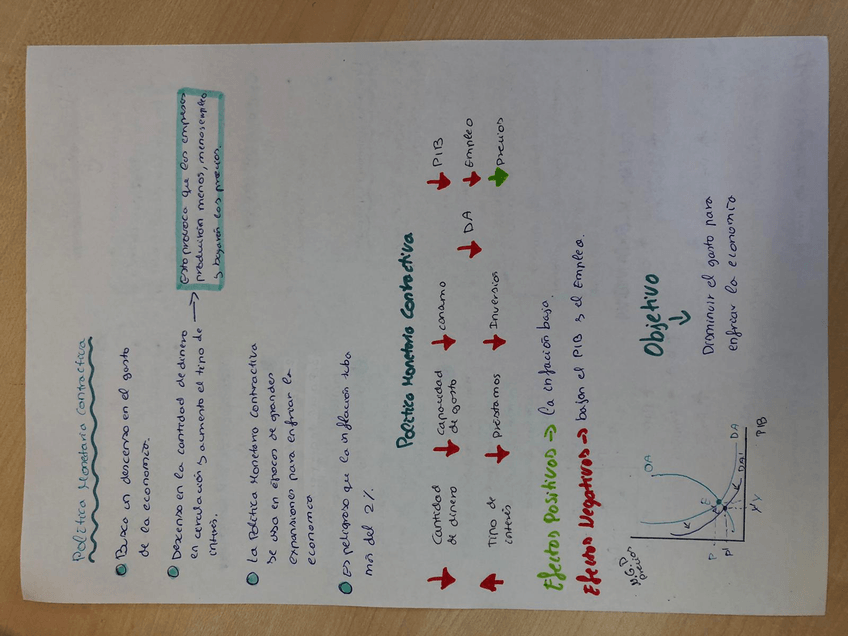 Política Monetaria Contractiva
Busca un descenso en el gasto
de la economía.
Descenso en la cantidad de dinero
en circulación y aumenta el tipo de
interés.
Esto provoca que las empresas
producirán menos, menos empleo
y bajarán los precios.
La Política Monetaria Contractiva
se usa en épocas de grandes
expansiones para enfriar la
economía
Es peligroso que la inflación suba
más del 2%.
Política Monetaria Contractiva
Cantidad
de dinero
Capacidad
de gasto
Consumo
DA
PIB
Tipo de
interés
Préstamos
Inversión
Empleo
Precios
Efectos Positivos → la inflación baja.
Efectos Negativos → bajan el PIB y el Empleo.
N.G.P
Precios
OA
P
P'
E
DA
DA'
Y' Y
PIB
Objetivo
Disminuir el gasto para
enfriar la economía